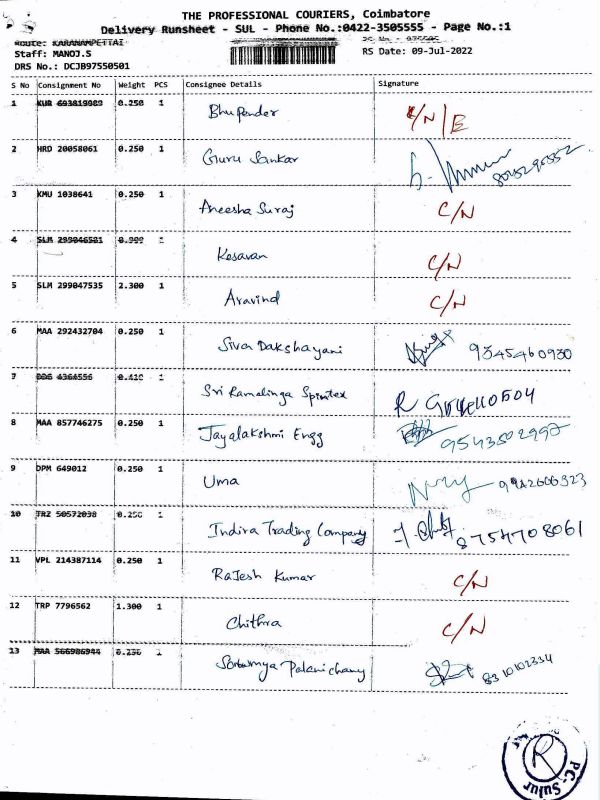 THE PROFESSIONAL COURIERS, Coimbatore
Delivery Runsheet - SUL - Phone No.:0422-3505555 - Page No.:1
Route: KARANAMPETTAI
Staff: MANOJ.S RS Date: 09-Jul-2022
DRS No.: DCJB97550501
S No Consignment No Weight PCS Consignee Details Signature
1 KUR 693819089 0.250 1 Bhupender C/N/E
2 HRD 20058061 0.250 1 Guru Sankar
3 KMU 1038641 0.250 1 Aneesha Suraj C/N
4 SLM 299046501 0.999 1 Kesavan C/N
5 SLM 299047535 2.300 1 Aravind C/N
6 MAA 292432704 0.250 1 Siva Dakshayani 9345460930
7 0.410 1 Sri Ramalinga Spintex R
8 MAA 857746275 0.250 1 Jayalakshmi Engg 9543502997
9 DPM 649012 0.250 1 Uma 9942606323
10 TRZ 50572038 0.250 1 Indira Trading Company 8754708061
11 VPL 214387114 0.250 1 Rajesh Kumar C/N
12 TRP 7796562 1.300 1 Chithra C/N
13 MAA 566986944 0.250 1 Sowmya Palanichamy 8310102334
R
PC-Sulur